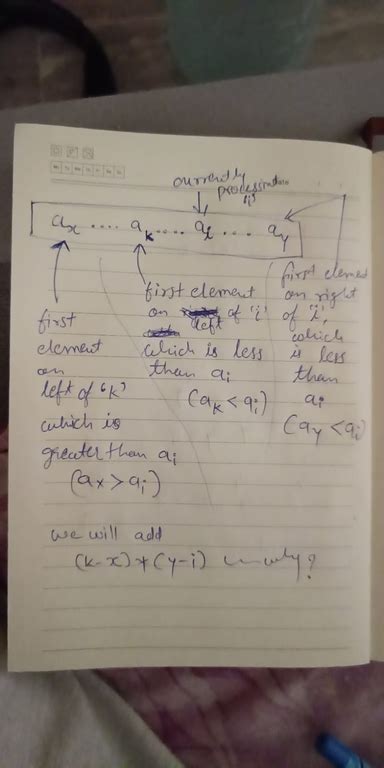 currently
processing
'i'
ax .... ak .... ai .... ay
first
element
on
left of 'k'
which is
greater than ai
(ax > ai)
first element
on left of 'i'
which is less
than ai
(ak < ai)
first element
on right
of 'i',
which
is less
than
ai
(ay < ai)
we will add
(k-x)*(y-i) why?